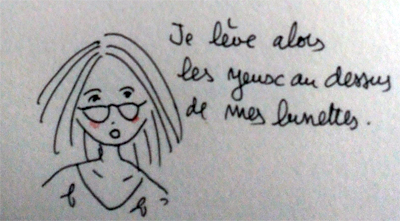 Je lève alors
les yeux au dessus
de mes lunettes.